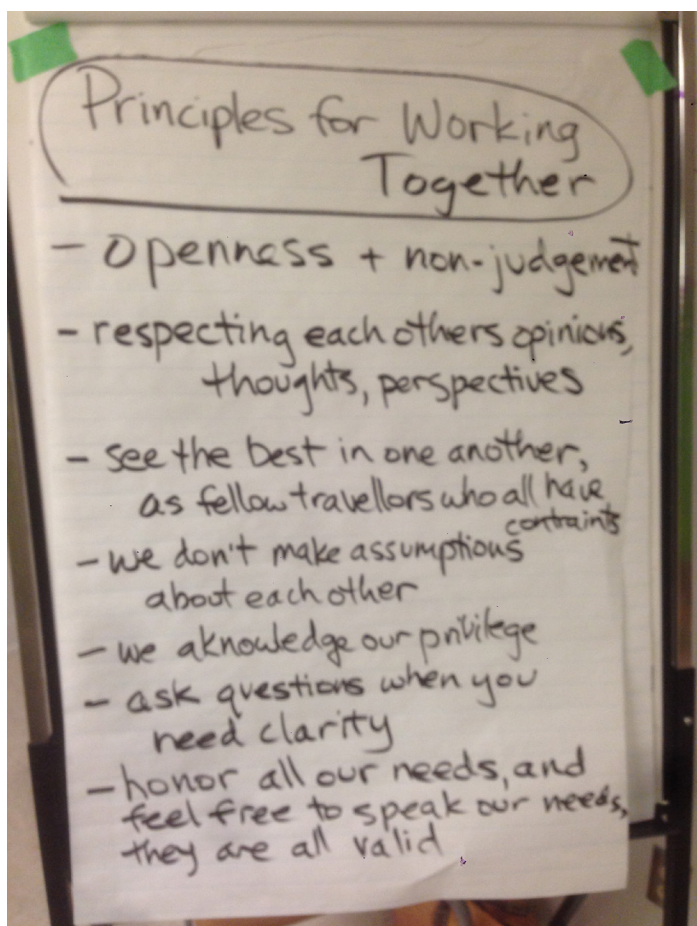 Principles for Working
Together
- openness + non-judgement
- respecting each others opinions,
thoughts, perspectives
- see the best in one another,
as fellow travellors who all have
contraints
- we don't make assumptions
about each other
- we aknowledge our privilege
- ask questions when you
need clarity
- honor all our needs, and
feel free to speak our needs,
they are all valid